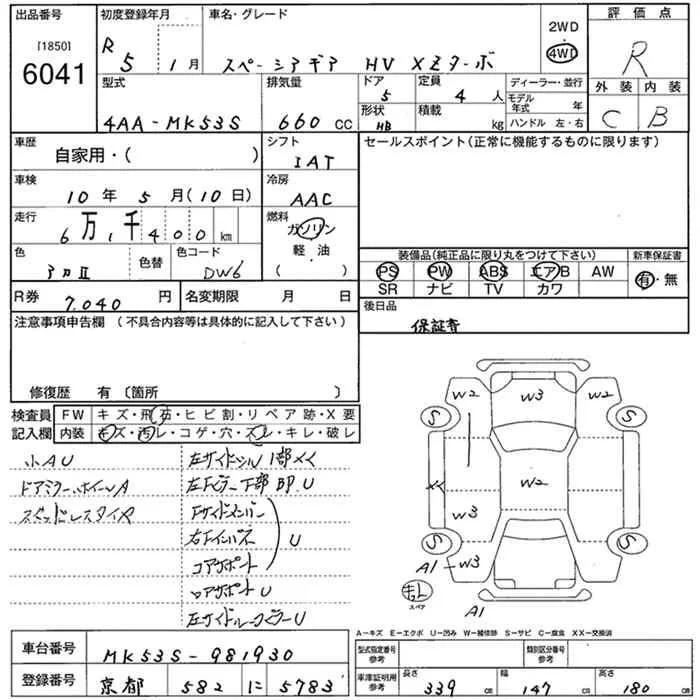 出品番号 初度登録年月 車名・グレード 2WD 評価点
[1850] R 5 1月 スペーシアギア HV XZターボ 4WD R
6041 型式 排気量 ドア 定員 ディーラー・並行 外装 内装
5 4人 モデル年式 年
4AA-MK53S 660cc 形状 HB 積載 kg ハンドル 左・右 C B
車歴 シフト セールスポイント(正常に機能するものに限ります)
自家用・( ) IAT
車検 冷房
10年5月(10日) AAC
走行 燃料
6万,1千400km ガソリン
色 色替 色コード 軽・油 装備品(純正品に限り丸をつけて下さい) 新車保証書
DW6 ( ) PS PW ABS エアB AW 有・無
R券 名変期限 SR ナビ TV カワ
7,040円 月 日 後日品
注意事項申告欄 (不具合内容等は具体的に記入して下さい) 保証書
修復歴 有〔箇所 〕
検査員 FW キズ・飛石・ヒビ割・リペア跡・X要
記入欄 内装 キズ・汚レ・コゲ・穴・スレ・キレ・破レ
小AU 左サイドシル1部メメ
ドアミラー.ホイールA 左Fピラー下部 即.U
スタッドレスタイヤ Fサイドメンバー
右Fインパネ U
コアサポート
ロアサポート U
W2 W3 W2
S S
W2
メメ W3
S S
A1 W3
キL
スペア
A1
A-キズ E-エクボ U-凹み W-補修跡 S-サビ C-腐食 XX-交換済
車台番号 MK53S-981930 型式指定番号 参考 類別区分番号 参考
登録番号 京都 582 に 5783 車庫証明用 参考 長さ 339cm 幅 147cm 高さ 180cm